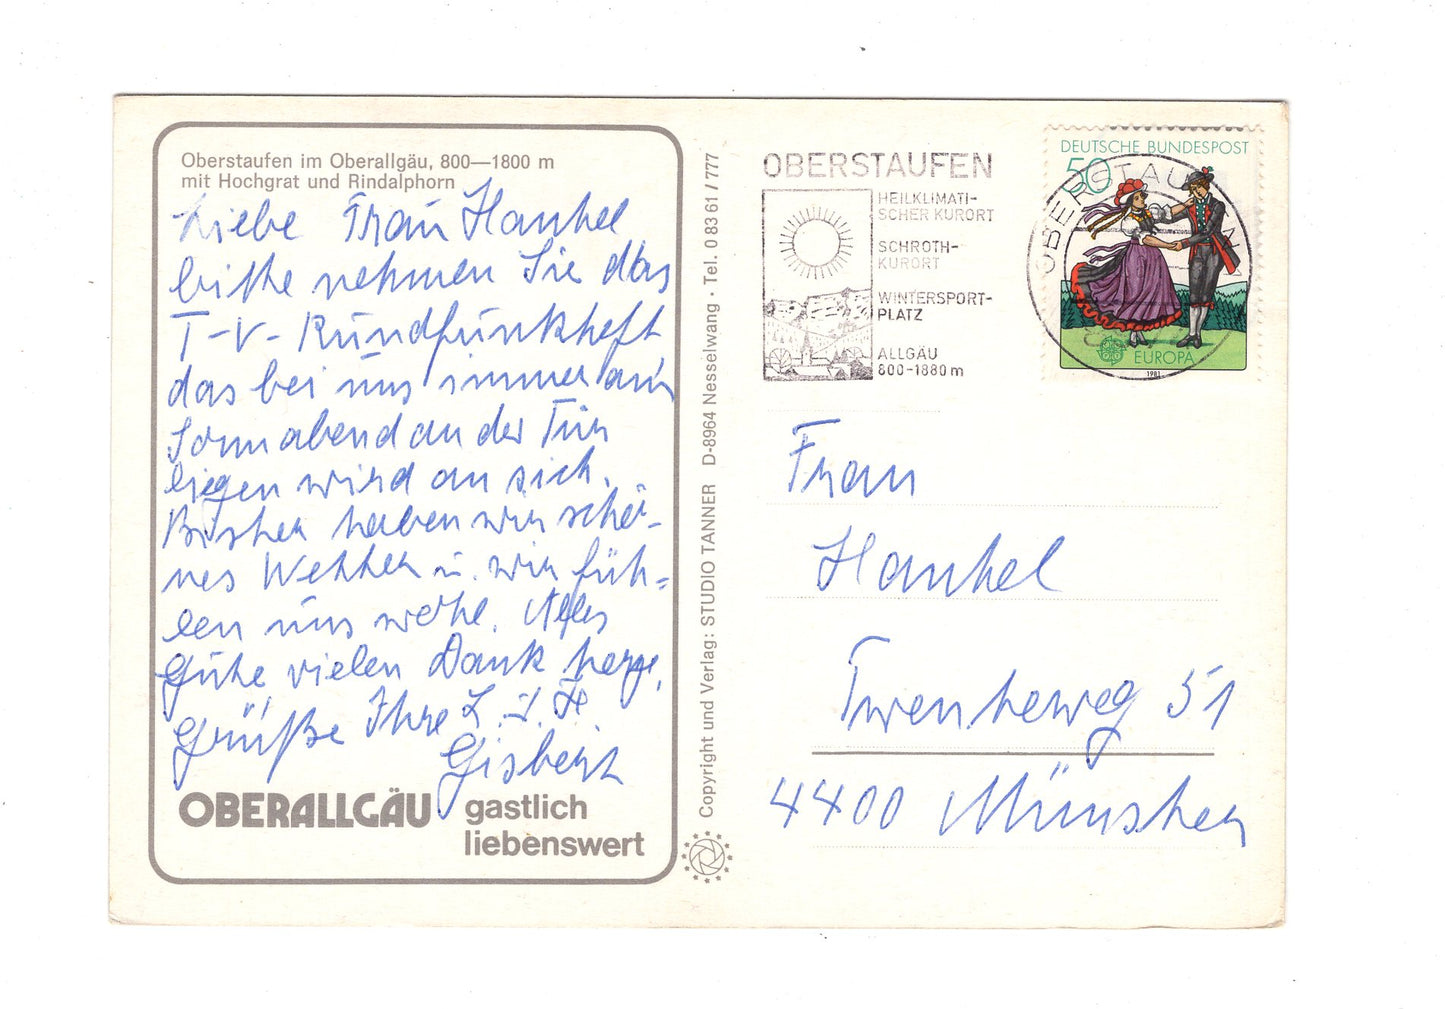 Oberstaufen im Oberallgäu, 800—1800 m
mit Hochgrat und Rindalphorn
Liebe Frau Hankel
bitte nehmen Sie das
T-V-Rundfunkheft
das bei uns immer am
Sonnabend an der Tür
liegen wird an sich.
Bisher haben wir schö-
nes Wetter u. wir füh=
len uns wohl. Alles
Gute, vielen Dank herzl.
Grüße Ihre L. u. H.
Gisbertz
OBERALLGÄU gastlich
liebenswert
Copyright und Verlag: STUDIO TANNER D-8964 Nesselwang · Tel. 0 83 61 / 777
OBERSTAUFEN
HEILKLIMATI-
SCHER KURORT
SCHROTH-
KURORT
WINTERSPORT-
PLATZ
ALLGÄU
800-1880 m
DEUTSCHE BUNDESPOST
50
OBERSTAUFEN
EUROPA
1981
Frau
Hankel
Twenteweg 51
4400 Münster